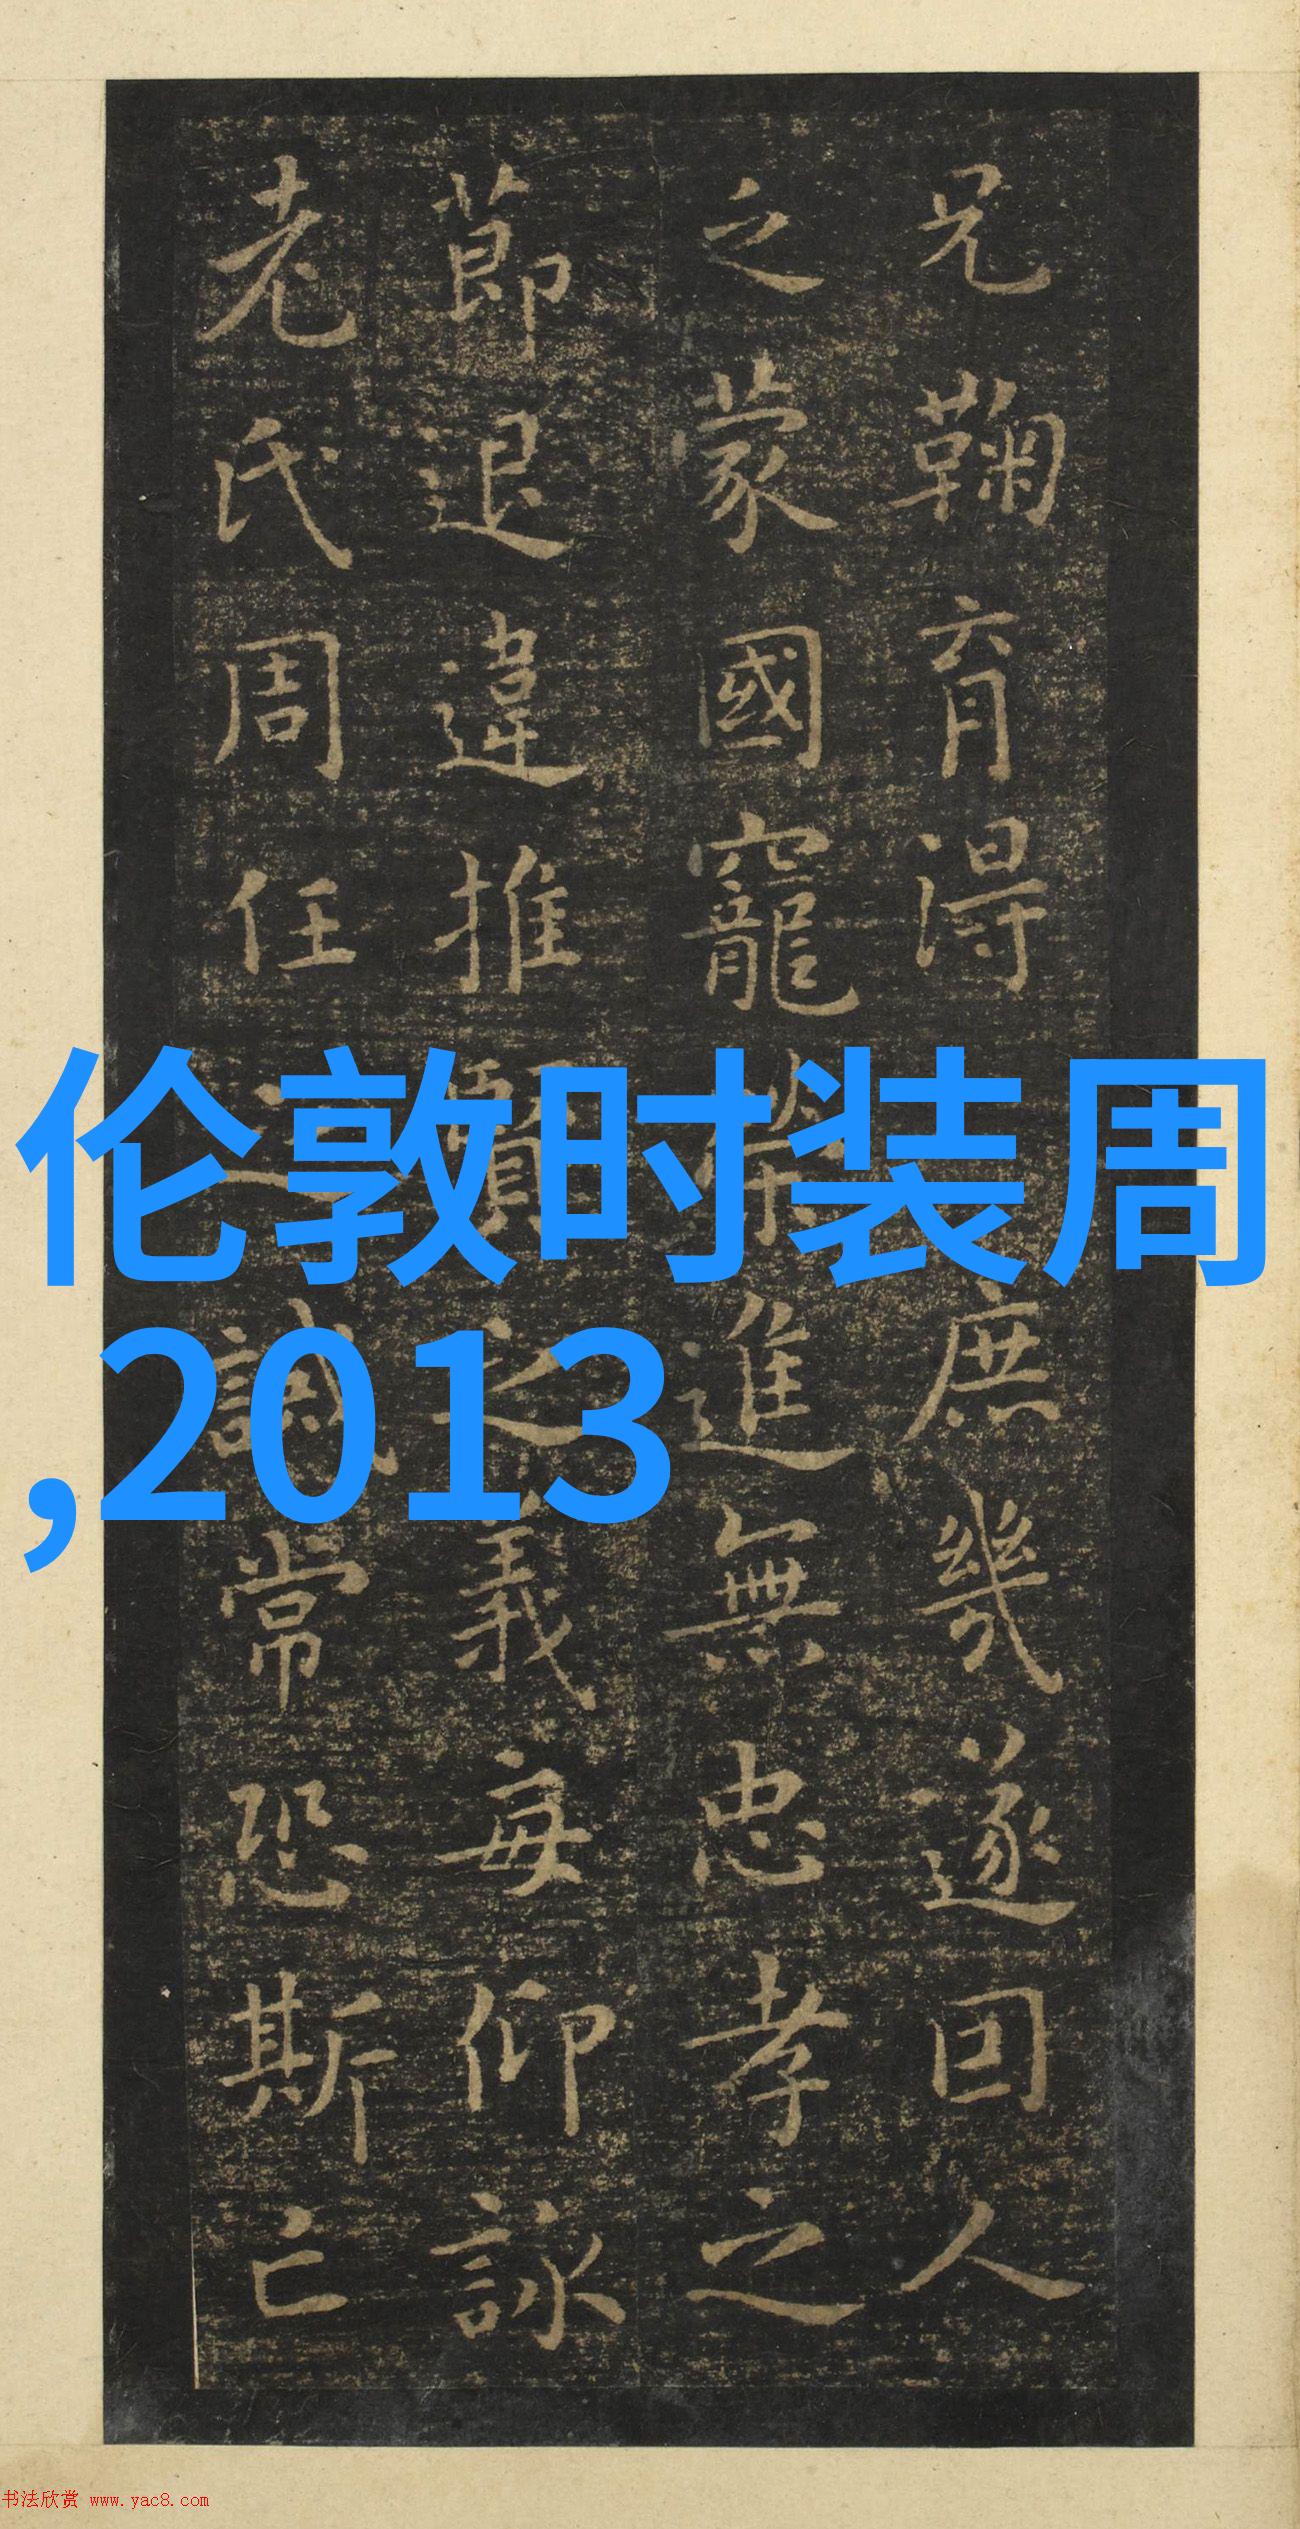 兄鞠育得庶幾遂因人
之蒙國寵榮進無忠孝之
莭退違推賢之義每仰詠
老氏周任之誡常恐斯亡
伦敦时装周
,2013
书法欣赏 www.yac8.com